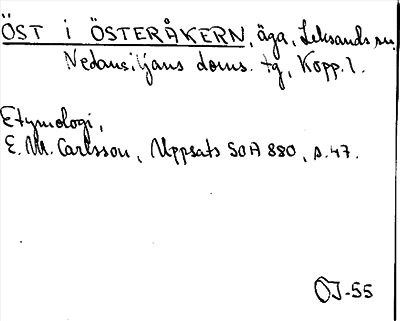 ÖST i ÖSTERÅKERN, äga, Leksands sn,
Nedansiljans doms. tg, Kopp. l.
Etymologi,
E. M. Carlsson, Uppsats SOA 880, s. 47.
OJ-55